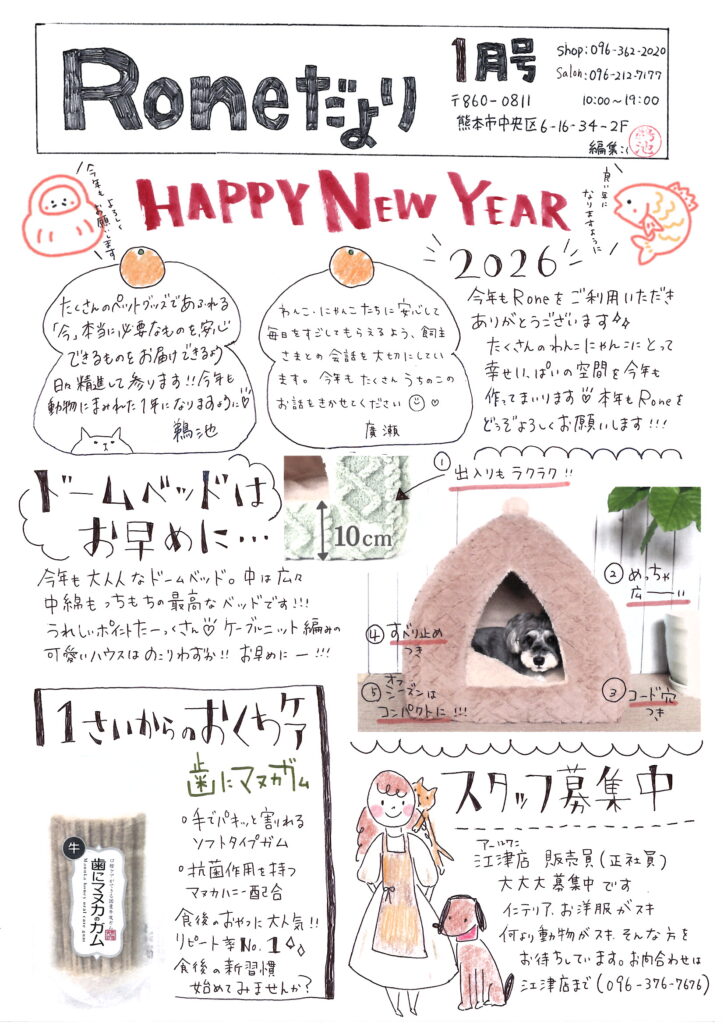 Roneだより
1月号
shop:096-362-2020
Salon:096-212-7177
〒860-0811
10:00〜19:00
熊本市中央区6-16-34-2F
編集:
鵜池
今年も
よろしく
お願いします
HAPPY NEW YEAR
良い年に
なりますように
2026
たくさんのペットグッズであふれる
「今」本当に必要なものを安心
できるものをお届けできるよう
日々精進して参ります!!今年も
動物にまみれた1年になりますように♡
鵜池
わんこ・にゃんこたちに安心して
毎日をすごしてもらえるよう、飼主
さまとの会話を大切にしてい
ます。今年もたくさんうちのこの
お話をきかせてください☺♡
廣瀬
今年もRoneをご利用いただき
ありがとうございます
たくさんのわんこにゃんこにとって
幸せいっぱいの空間を今年も
作ってまいります♡本年もRoneを
どうぞよろしくお願いします!!!
ドームベッドは
お早めに…
①出入りもラクラク!!
10cm
今年も大人気なドームベッド。中は広々
中綿もっちもちの最高なベッドです!!!
うれしいポイントたーっくさん♡ケーブルニット編みの
可愛いハウスはのこりわずか!!お早めにー!!!
②めっちゃ
広ーい
④すべり止め
つき
⑤オフ
シーズンは
コンパクトに!!!
③コード穴
つき
1さいからのおくちケア
歯にマヌカガム
○手でパキッと割れる
ソフトタイプガム
○抗菌作用を持つ
マヌカハニー配合
食後のおやつに大人気!!
リピート率No.1
食後の新習慣
始めてみませんか?
牛
歯にマヌカのガム
スタッフ募集中
アールワン
江津店 販売員(正社員)
大大大募集中です
インテリア、お洋服がスキ
何より動物がスキ、そんな方を
お待ちしています。お問合わせは
江津店まで(096-376-7676)